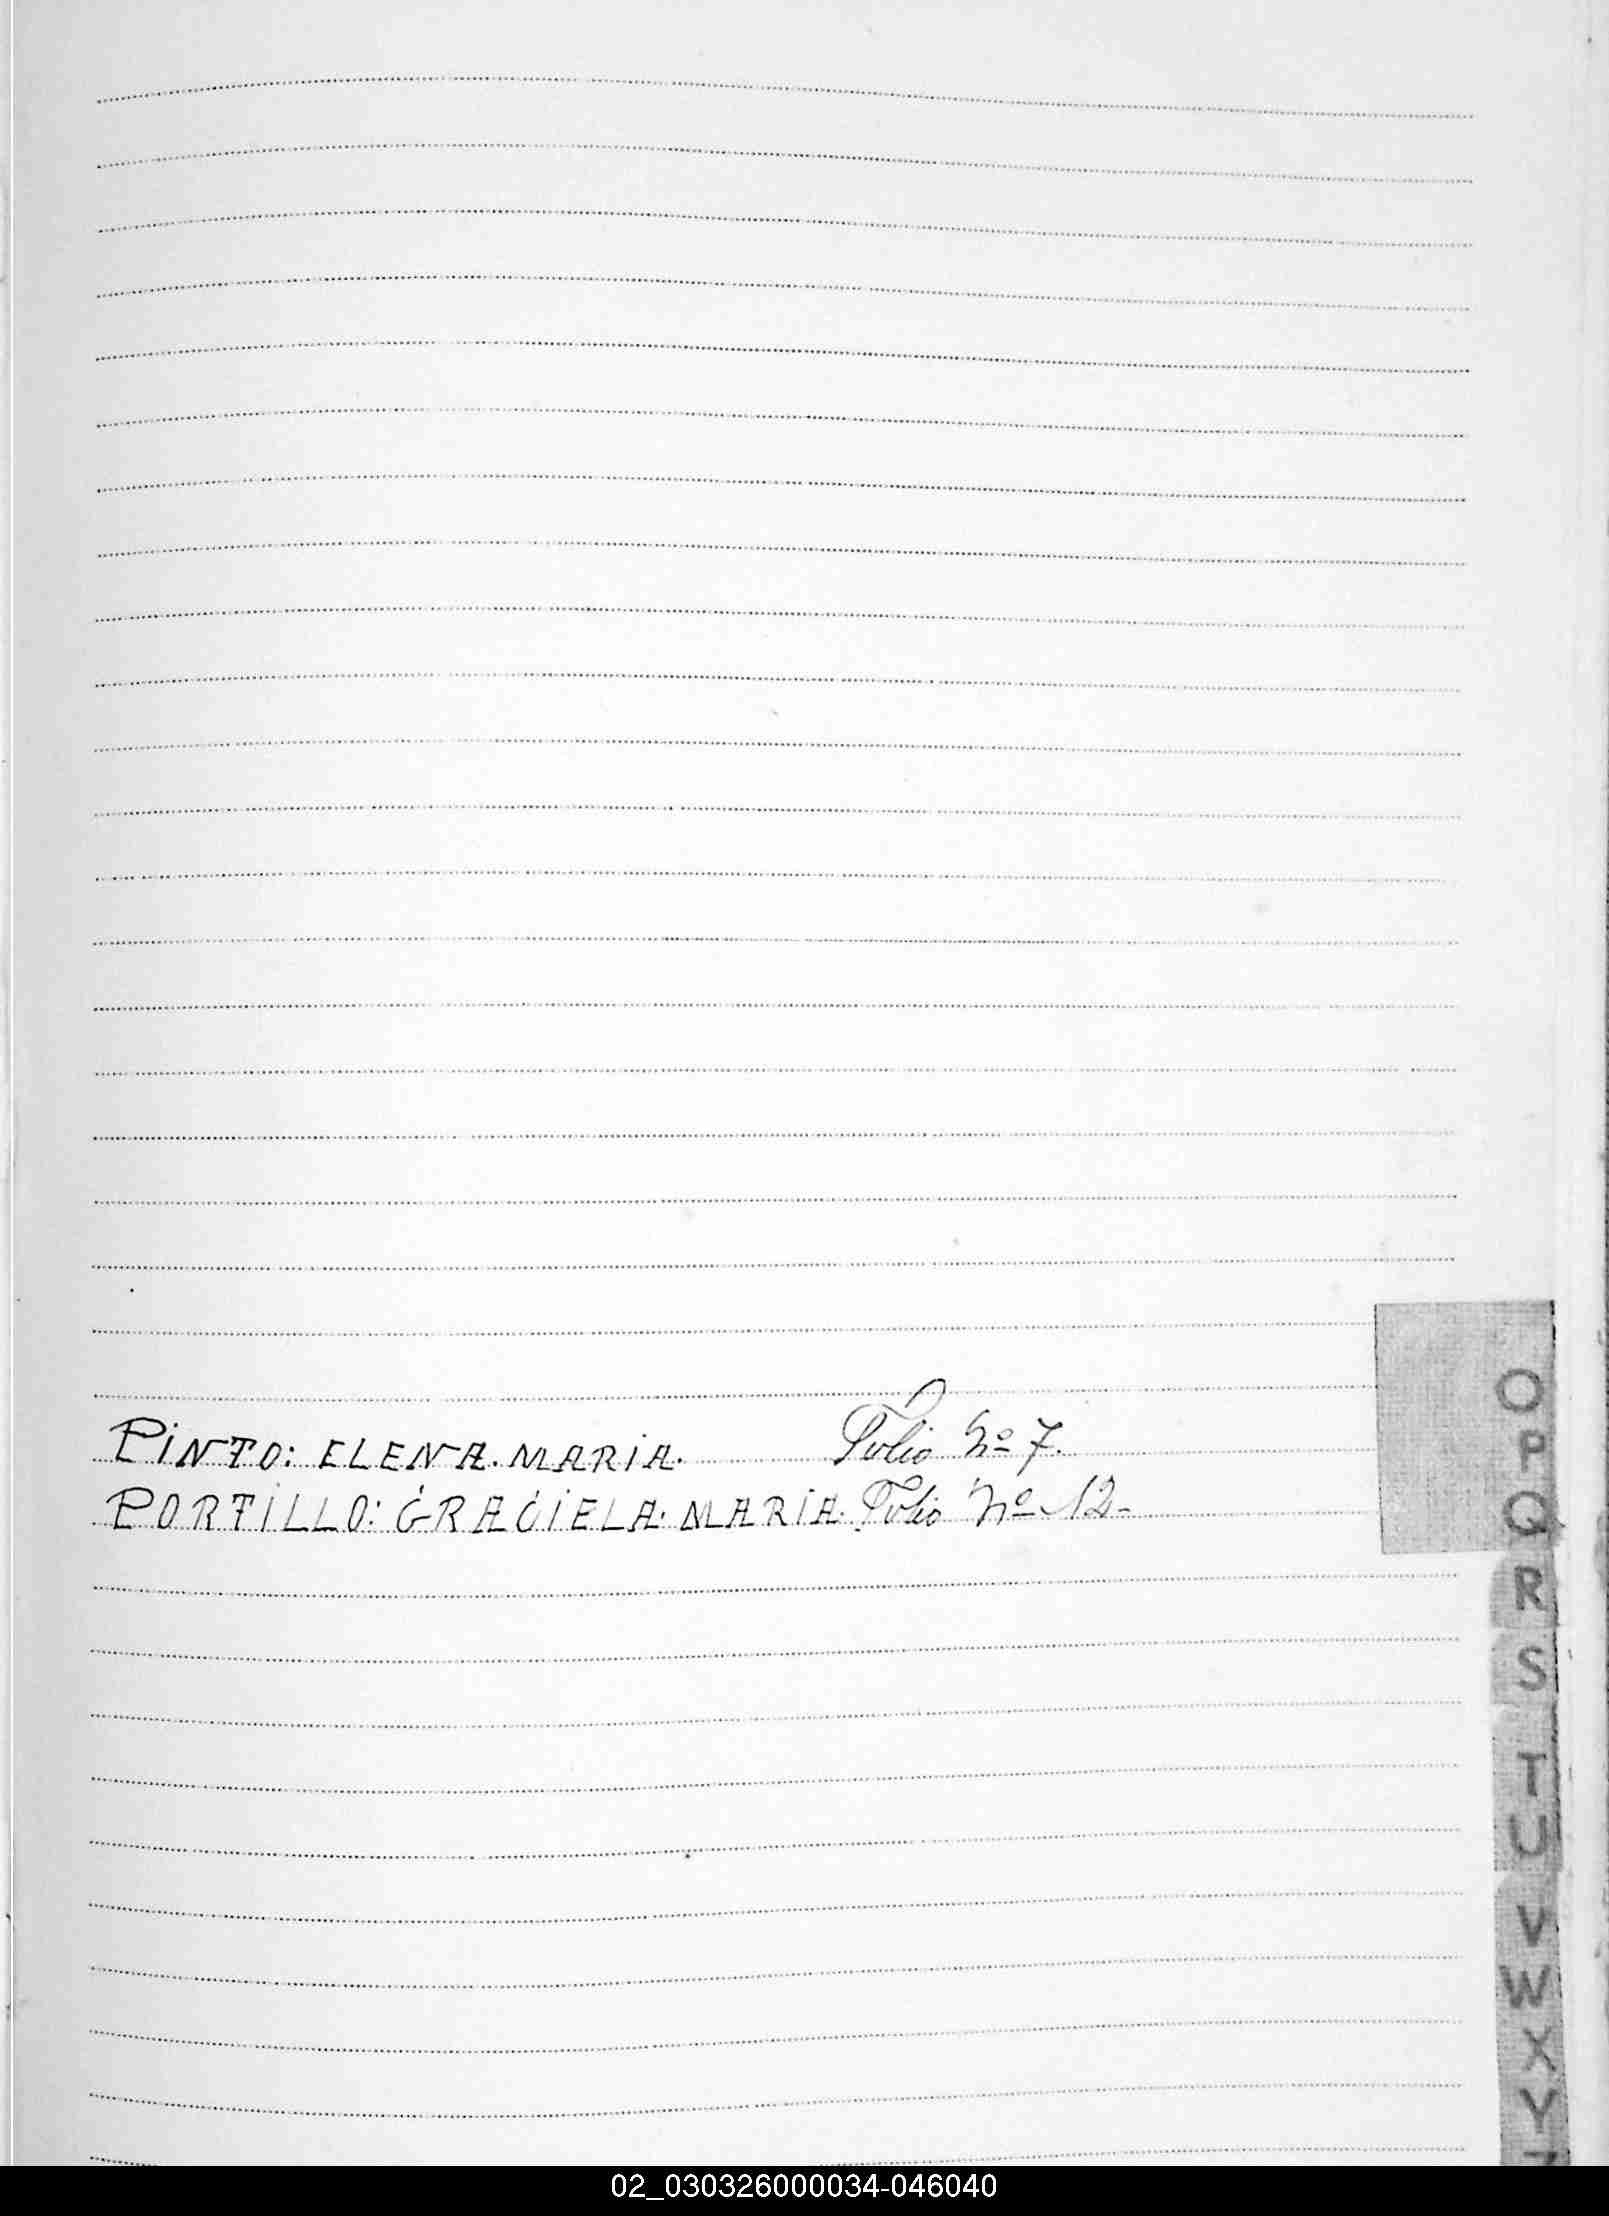 PINTO: ELENA. MARIA. Folio Nº 7.
PORTILLO: GRACIELA. MARIA. Folio Nº 12-
O
P
Q
R
S
T
U
V
W
X
Y
Z
02_030326000034-046040